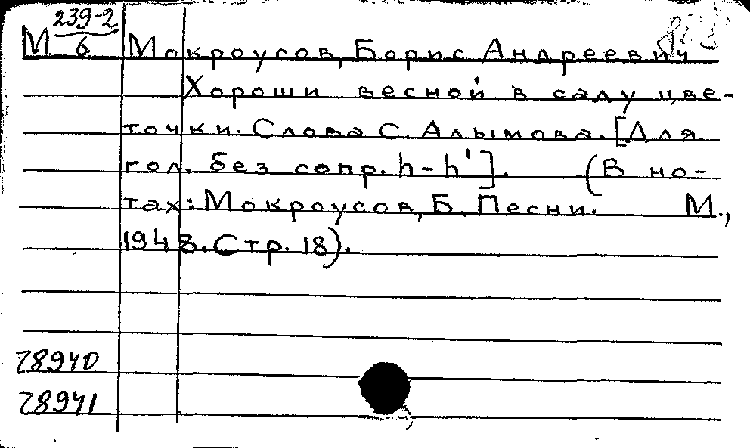 М 239-2
6
Мокроусов, Борис Андреевич
Хороши весной в саду цве-
точки. Слова С. Алымова. [Для
гол. без сопр. h-h']. (В но-
тах: Мокроусов, Б. Песни. М.,
1948. Стр. 18).
78940
78941